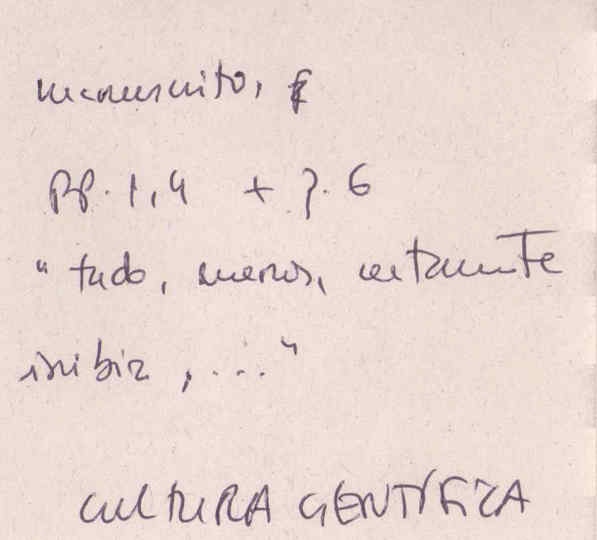 manuscrito, f
pp. 1,4 + p. 6
" tudo, menos, certamente
inibir, ..."
CULTURA CIENTÍFICA